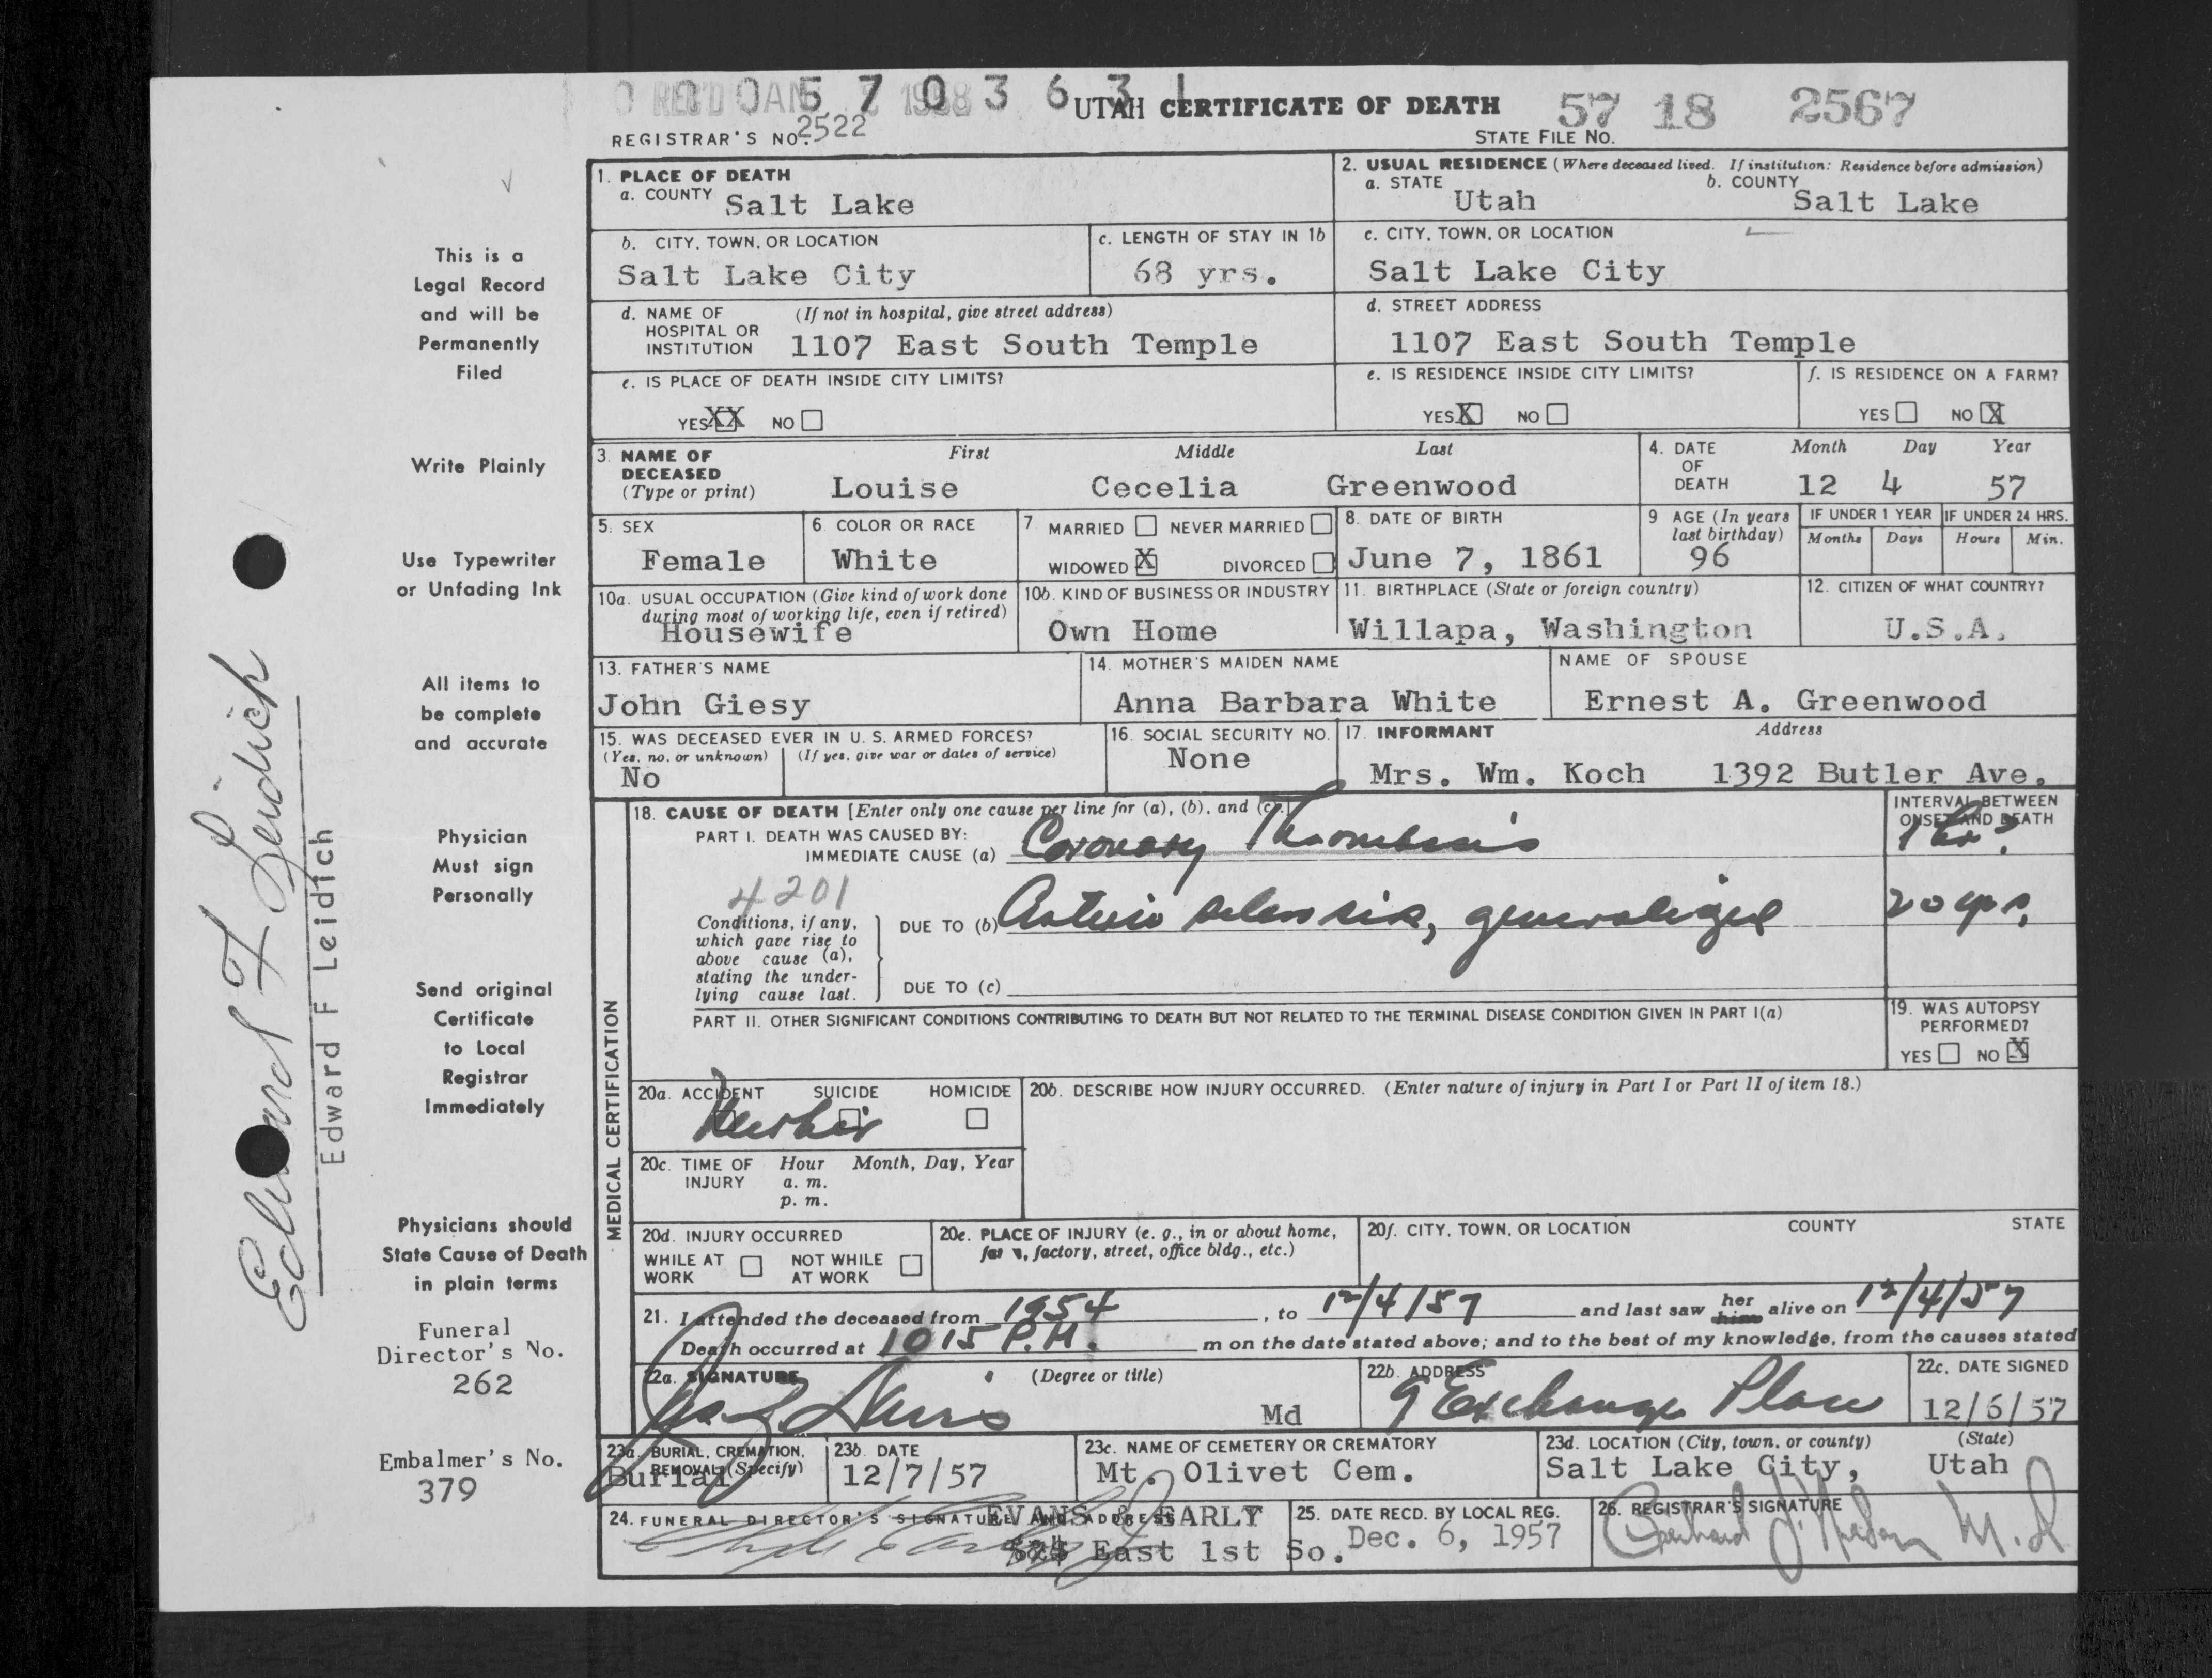 REC'D JAN 1958
0 0 0 5 7 0 3 6 3 1
UTAH CERTIFICATE OF DEATH
57 18 2567
REGISTRAR'S NO. 2522
STATE FILE NO.
1. PLACE OF DEATH
a. COUNTY Salt Lake
2. USUAL RESIDENCE (Where deceased lived. If institution: Residence before admission)
a. STATE Utah b. COUNTY Salt Lake
b. CITY, TOWN, OR LOCATION Salt Lake City
c. LENGTH OF STAY IN 1b 68 yrs.
c. CITY, TOWN, OR LOCATION Salt Lake City
d. NAME OF HOSPITAL OR INSTITUTION (If not in hospital, give street address) 1107 East South Temple
d. STREET ADDRESS 1107 East South Temple
e. IS PLACE OF DEATH INSIDE CITY LIMITS?
YES XX NO
e. IS RESIDENCE INSIDE CITY LIMITS?
YES X NO
f. IS RESIDENCE ON A FARM?
YES NO X
3. NAME OF DECEASED (Type or print)
First Middle Last
Louise Cecelia Greenwood
4. DATE OF DEATH
Month Day Year
12 4 57
5. SEX Female
6. COLOR OR RACE White
7 MARRIED NEVER MARRIED
WIDOWED X DIVORCED
8. DATE OF BIRTH June 7, 1861
9 AGE (In years last birthday) 96
IF UNDER 1 YEAR Months Days
IF UNDER 24 HRS. Hours Min.
10a. USUAL OCCUPATION (Give kind of work done during most of working life, even if retired) Housewife
10b. KIND OF BUSINESS OR INDUSTRY Own Home
11. BIRTHPLACE (State or foreign country) Willapa, Washington
12. CITIZEN OF WHAT COUNTRY? U.S.A.
13. FATHER'S NAME John Giesy
14. MOTHER'S MAIDEN NAME Anna Barbara White
NAME OF SPOUSE Ernest A. Greenwood
15. WAS DECEASED EVER IN U. S. ARMED FORCES?
(Yes, no, or unknown) (If yes, give war or dates of service)
No
16. SOCIAL SECURITY NO. None
17. INFORMANT Address
Mrs. Wm. Koch 1392 Butler Ave.
MEDICAL CERTIFICATION
18. CAUSE OF DEATH [Enter only one cause per line for (a), (b), and (c).]
INTERVAL BETWEEN ONSET AND DEATH
PART I. DEATH WAS CAUSED BY:
IMMEDIATE CAUSE (a) Coronary Thrombosis 1 hr?
4201
Conditions, if any, which gave rise to above cause (a), stating the underlying cause last.
DUE TO (b) Arterio sclerosis, generalized 20 yrs.
DUE TO (c)
PART II. OTHER SIGNIFICANT CONDITIONS CONTRIBUTING TO DEATH BUT NOT RELATED TO THE TERMINAL DISEASE CONDITION GIVEN IN PART I(a)
19. WAS AUTOPSY PERFORMED?
YES NO X
20a. ACCIDENT SUICIDE HOMICIDE
20b. DESCRIBE HOW INJURY OCCURRED. (Enter nature of injury in Part I or Part II of item 18.)
20c. TIME OF INJURY Hour Month, Day, Year
a. m.
p. m.
20d. INJURY OCCURRED
WHILE AT WORK NOT WHILE AT WORK
20e. PLACE OF INJURY (e. g., in or about home, farm, factory, street, office bldg., etc.)
20f. CITY, TOWN, OR LOCATION COUNTY STATE
21. I attended the deceased from 1954, to 12/4/57 and last saw her him alive on 12/4/57
Death occurred at 10 15 P.M. m on the date stated above; and to the best of my knowledge, from the causes stated
22a. SIGNATURE (Degree or title)
Md
22b. ADDRESS 9 Exchange Place
22c. DATE SIGNED 12/6/57
23a. BURIAL, CREMATION, REMOVAL (Specify) Burial
23b. DATE 12/7/57
23c. NAME OF CEMETERY OR CREMATORY Mt. Olivet Cem.
23d. LOCATION (City, town, or county) (State)
Salt Lake City, Utah
24. FUNERAL DIRECTOR'S SIGNATURE AND ADDRESS
EVANS & EARLY
East 1st So.
25. DATE RECD. BY LOCAL REG. Dec. 6, 1957
26. REGISTRAR'S SIGNATURE
M.D.
This is a
Legal Record
and will be
Permanently
Filed
Write Plainly
Use Typewriter
or Unfading Ink
All items to
be complete
and accurate
Physician
Must sign
Personally
Send original
Certificate
to Local
Registrar
Immediately
Physicians should
State Cause of Death
in plain terms
Funeral
Director's No.
262
Embalmer's No.
379
Edward F Leidich
Edward F Leidich